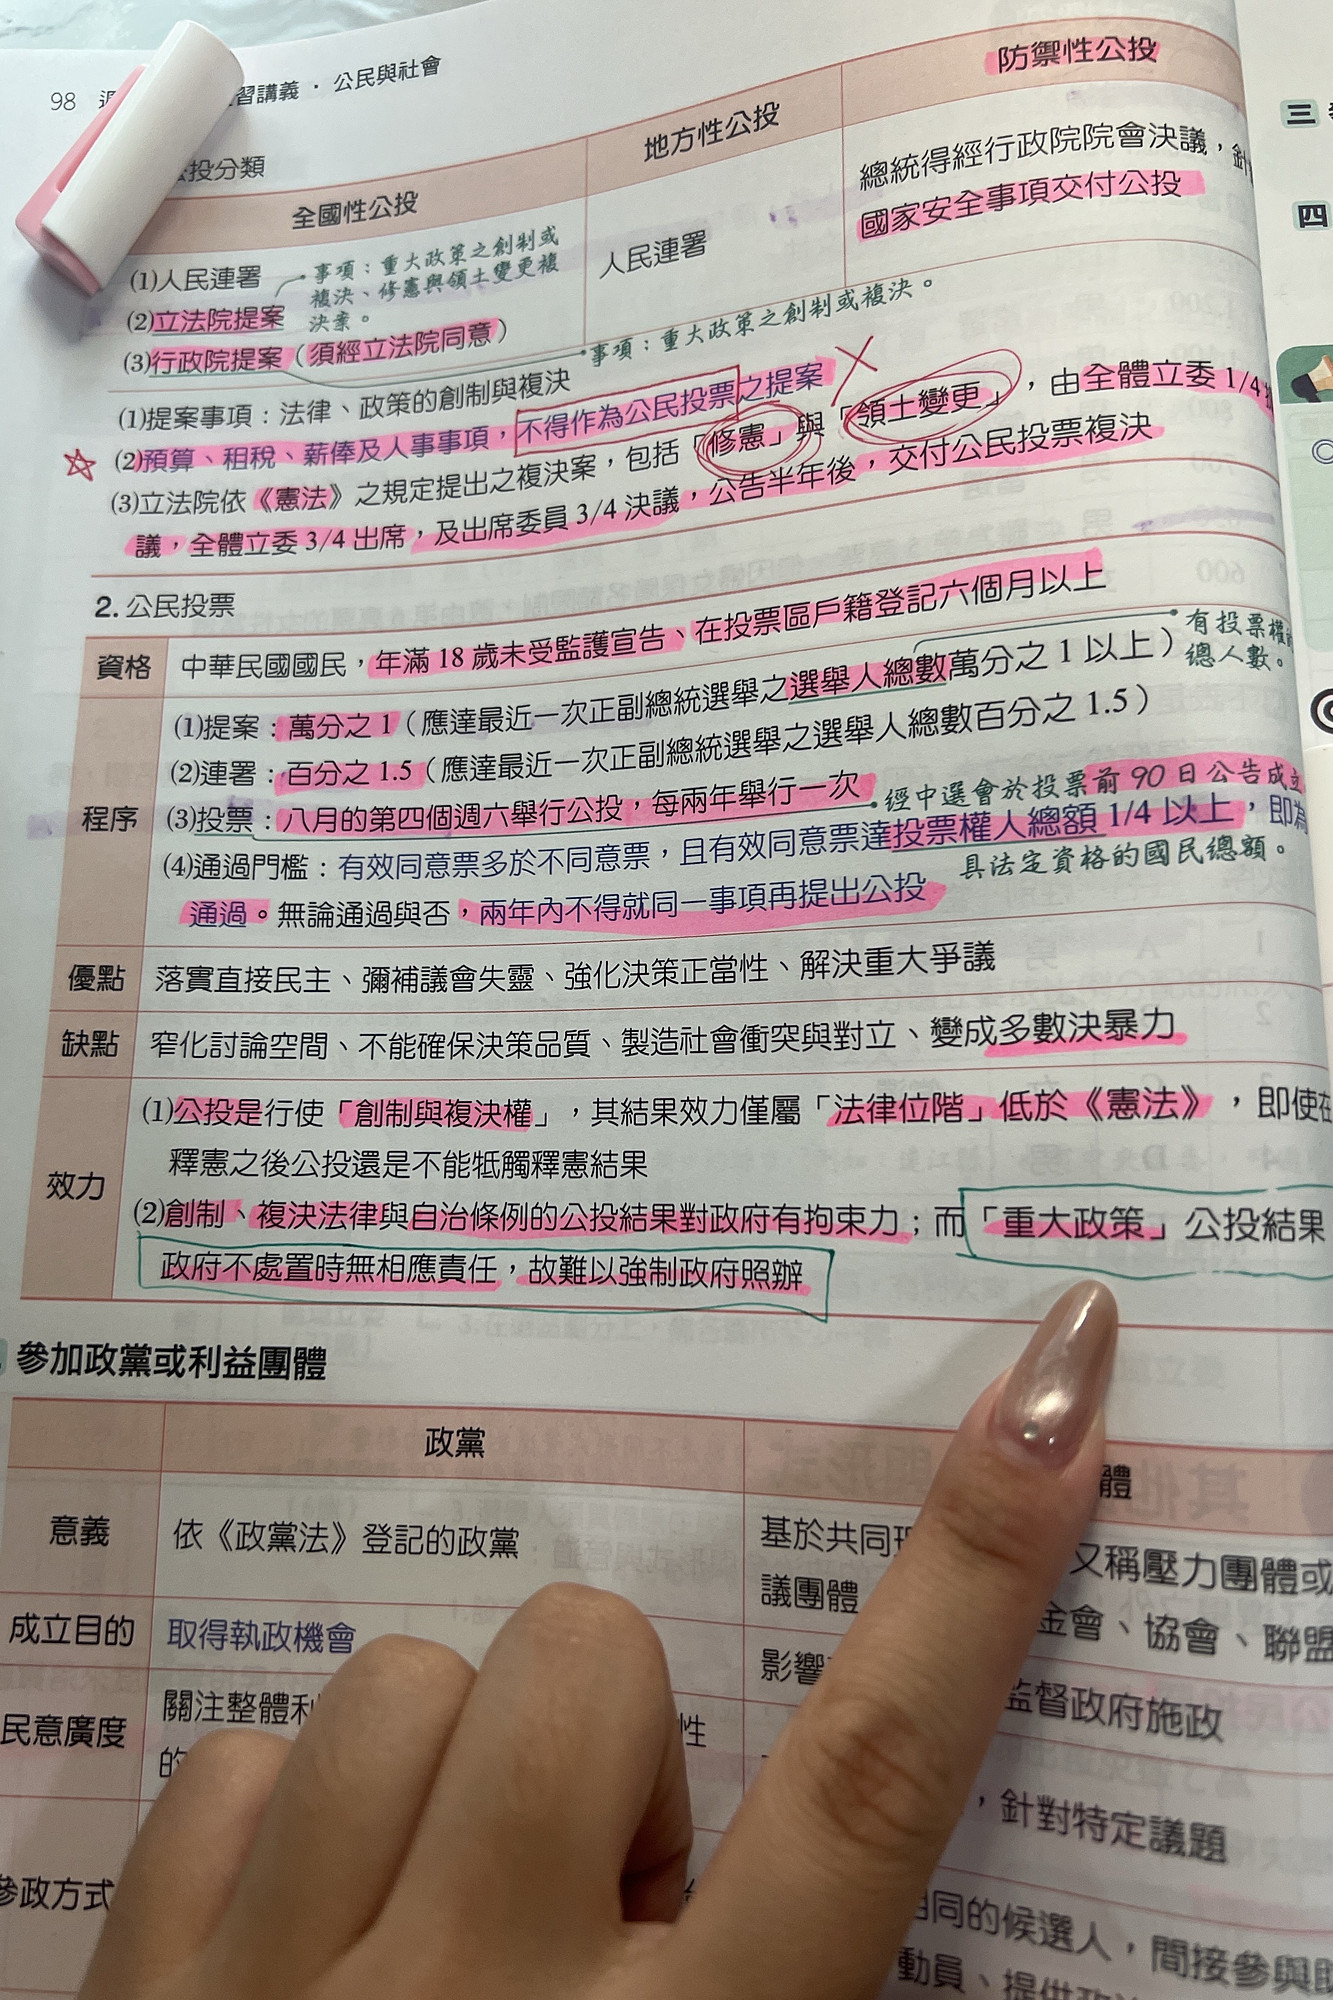 98
習講義．公民與社會
投分類
全國性公投
地方性公投
防禦性公投
(1)人民連署
(2)立法院提案
(3)行政院提案（須經立法院同意）
事項：重大政策之創制或
複決、修憲與領土變更複
決案。
人民連署
總統得經行政院院會決議，針
國家安全事項交付公投
事項：重大政策之創制或複決。
(1)提案事項：法律、政策的創制與複決
(2)預算、租稅、薪俸及人事事項，不得作為公民投票之提案
(3)立法院依《憲法》之規定提出之複決案，包括「修憲」與「領土變更」，由全體立委 1/4
議，全體立委 3/4 出席，及出席委員 3/4 決議，公告半年後，交付公民投票複決
2. 公民投票
資格
中華民國國民，年滿 18 歲未受監護宣告、在投票區戶籍登記六個月以上
有投票權
總人數。
程序
(1)提案：萬分之 1（應達最近一次正副總統選舉之選舉人總數萬分之 1 以上）
(2)連署：百分之 1.5（應達最近一次正副總統選舉之選舉人總數百分之 1.5）
(3)投票：八月的第四個週六舉行公投，每兩年舉行一次
經中選會於投票前 90 日公告成立
(4)通過門檻：有效同意票多於不同意票，且有效同意票達投票權人總額 1/4 以上，即為
通過。無論通過與否，兩年內不得就同一事項再提出公投
具法定資格的國民總額。
優點
落實直接民主、彌補議會失靈、強化決策正當性、解決重大爭議
缺點
窄化討論空間、不能確保決策品質、製造社會衝突與對立、變成多數決暴力
效力
(1)公投是行使「創制與複決權」，其結果效力僅屬「法律位階」低於《憲法》，即使在
釋憲之後公投還是不能牴觸釋憲結果
(2)創制、複決法律與自治條例的公投結果對政府有拘束力；而「重大政策」公投結果
政府不處置時無相應責任，故難以強制政府照辦
參加政黨或利益團體
政黨
體
意義
依《政黨法》登記的政黨
基於共同
又稱壓力團體或
議團體
金會、協會、聯盟
成立目的
取得執政機會
影響
監督政府施政
民意廣度
關注整體利
性
的
，針對特定議題
參政方式
相同的候選人，間接參與
動員、提供政
三
四